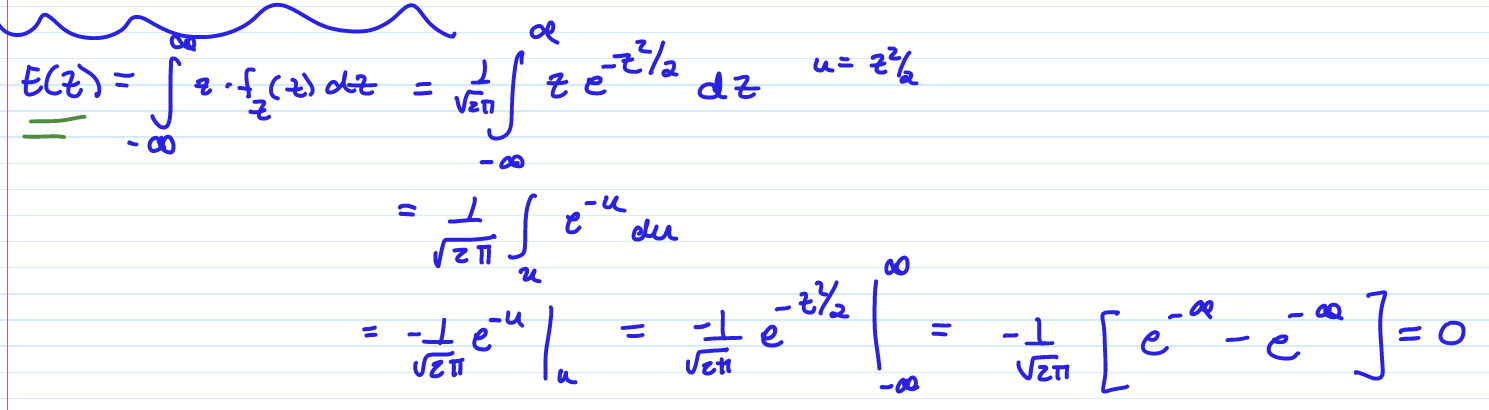 E(z) = ∫_{-∞}^{∞} z · f_z(z) dz = 1/√2π ∫_{-∞}^{∞} z e^{-z²/2} dz u = z²/2
= 1/√2π ∫_u e^{-u} du
= -1/√2π e^{-u} |_u = -1/√2π e^{-z²/2} |_{-∞}^{∞} = -1/√2π [ e^{-∞} - e^{-∞} ] = 0